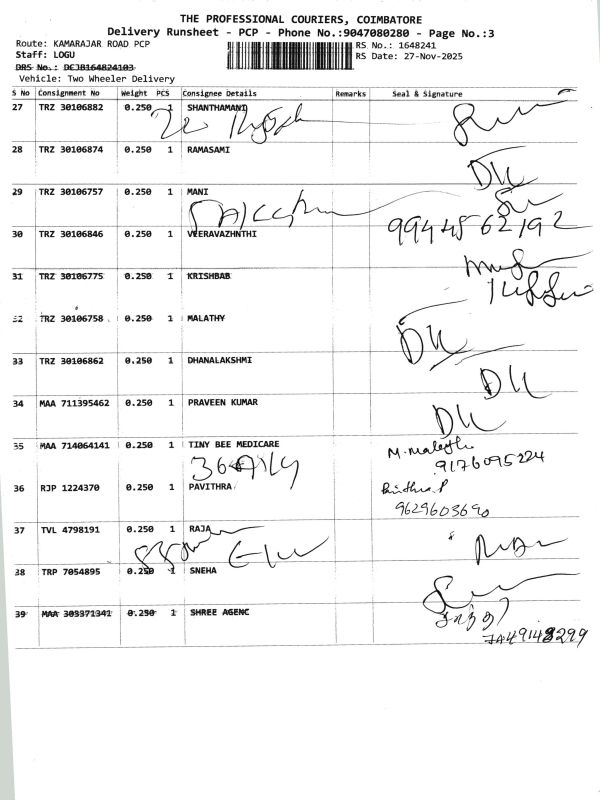 THE PROFESSIONAL COURIERS, COIMBATORE
Delivery Runsheet - PCP - Phone No.:9047080280 - Page No.:3
Route: KAMARAJAR ROAD PCP RS No.: 1648241
Staff: LOGU RS Date: 27-Nov-2025
DRS No.: DCJB164824103
Vehicle: Two Wheeler Delivery
S No Consignment No Weight PCS Consignee Details Remarks Seal & Signature
27 TRZ 30106882 0.250 1 SHANTHAMANI
28 TRZ 30106874 0.250 1 RAMASAMI
29 TRZ 30106757 0.250 1 MANI
9944562192
30 TRZ 30106846 0.250 1 VEERAVAZHNTHI
31 TRZ 30106775 0.250 1 KRISHBAB
32 TRZ 30106758 0.250 1 MALATHY
33 TRZ 30106862 0.250 1 DHANALAKSHMI
34 MAA 711395462 0.250 1 PRAVEEN KUMAR
35 MAA 714064141 0.250 1 TINY BEE MEDICARE M. Malathi
9176095224
36 RJP 1224370 0.250 1 PAVITHRA
9629603690
37 TVL 4798191 0.250 1 RAJA
38 TRP 7054895 0.250 1 SNEHA
39 MAA 303371341 0.250 1 SHREE AGENC